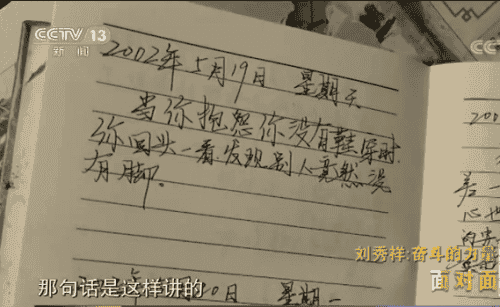 CCTV 13
新闻
CC
2002年5月19日 星期天
当你抱怨你没有鞋穿时,
你回头一看,发现别人竟然没
有脚.
200
差一
心地
刘秀祥:奋斗的力量
面对面
那句话是这样讲的
20日 星期一